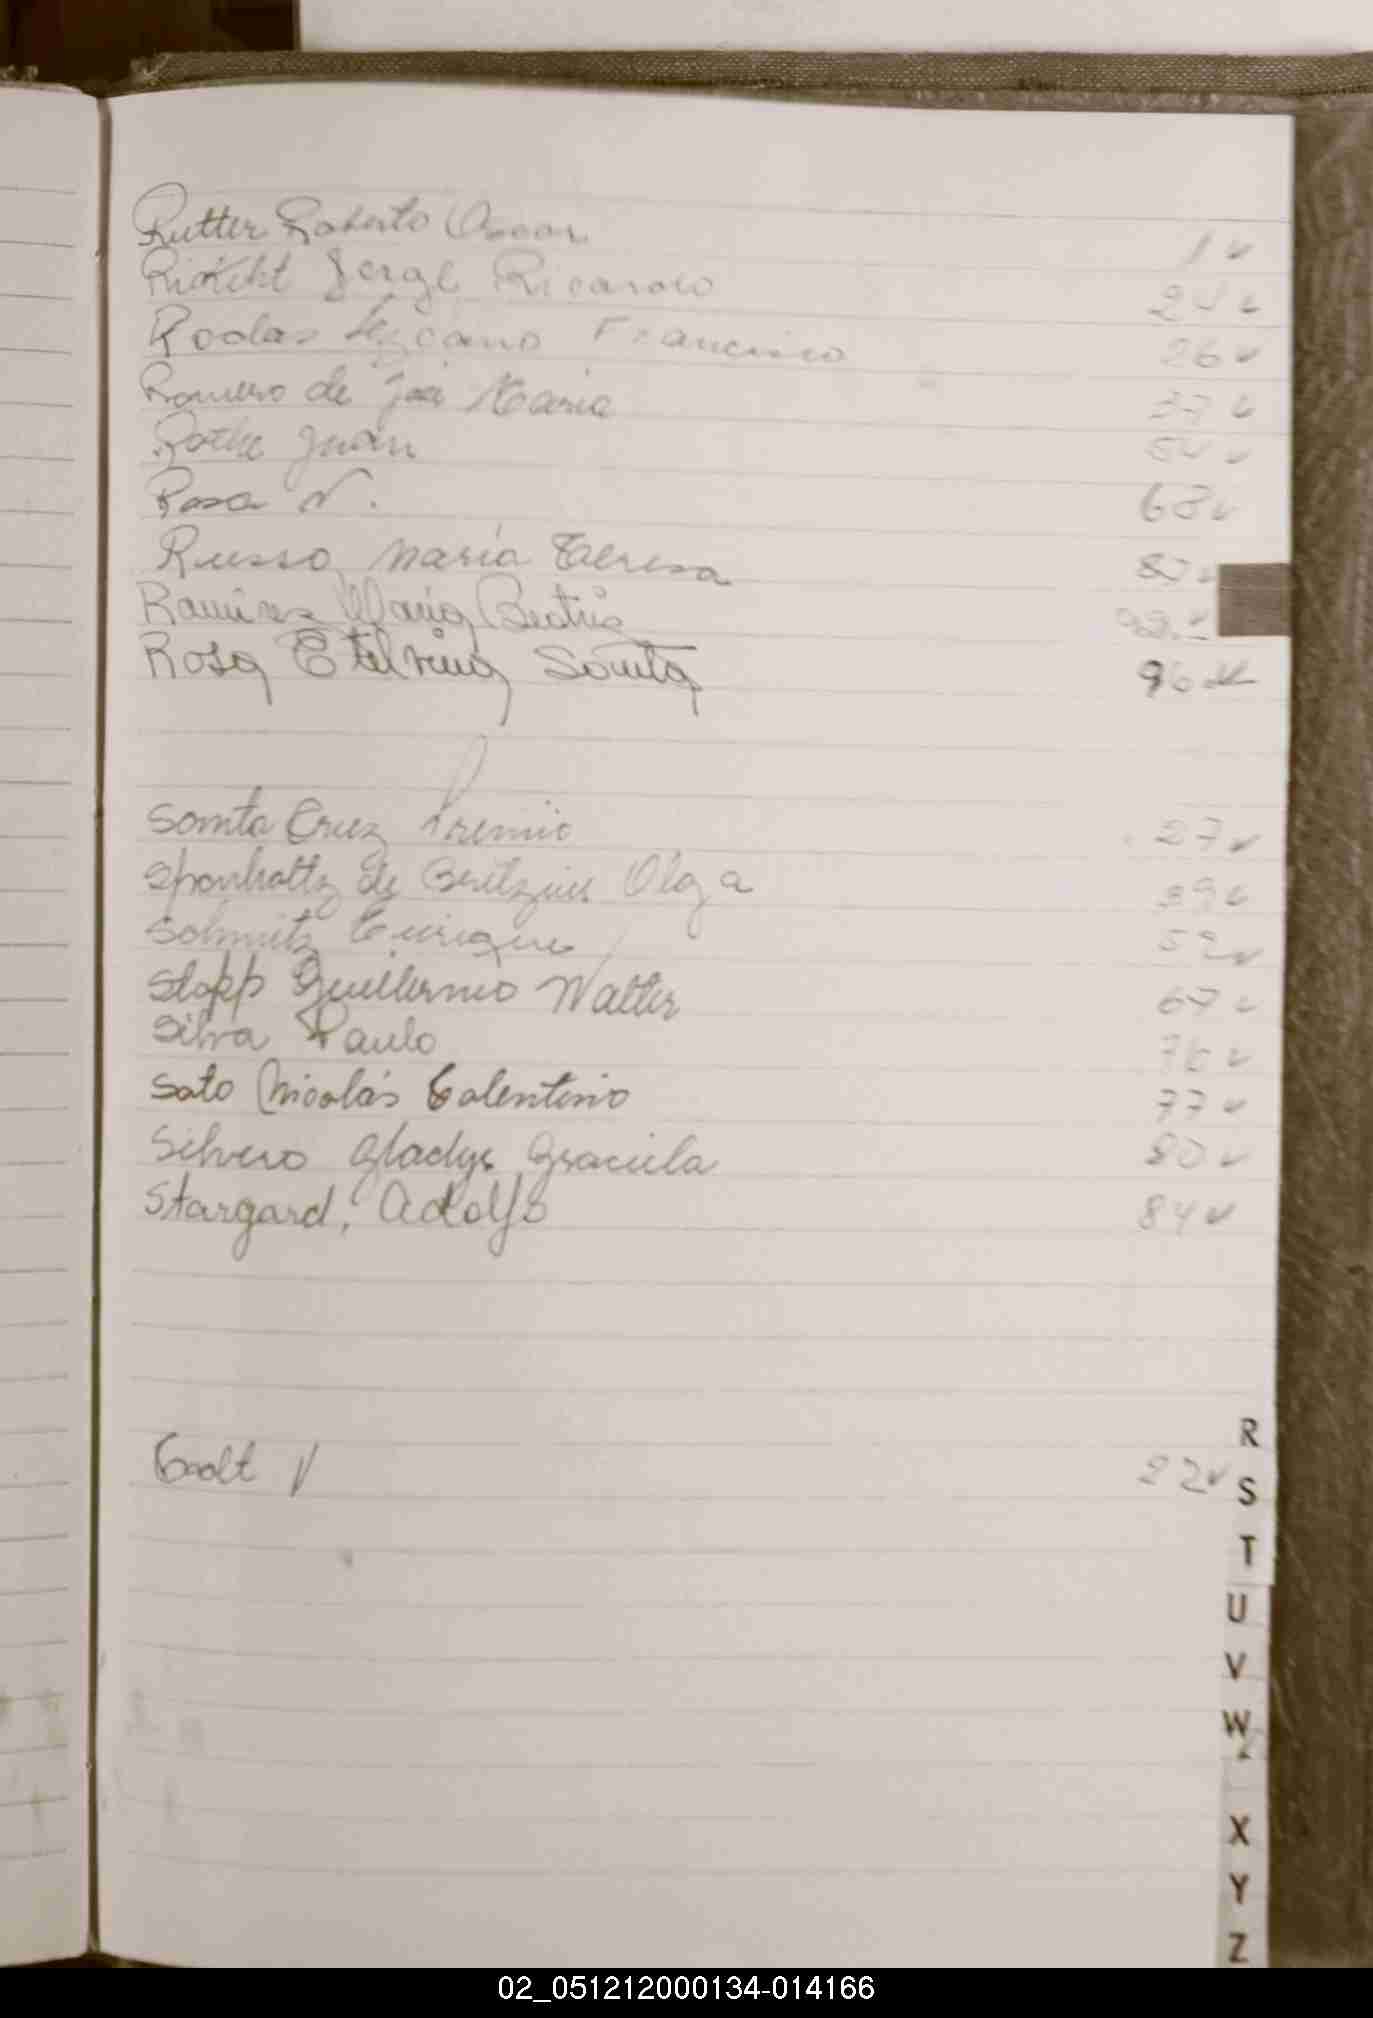 Rutter Roberto Oscar 1
Rickert Jorge Ricardo 24
Rodas Lezcano Francisco 26
Romero de José María 37
Rothe Juan 54
Rosa N. 63
Russo María Teresa 82
Ramírez María Beatriz
Rosa Etelvina Santa 96
Santa Cruz Iremio 27
Sponholtz de Olga 39
Schmitz Enrique 52
Stopp Guillermo Walter 67
Silva Paulo 76
Soto Nicolás Valentino 77
Silvero Gladys Graciela 80
Stargard, Adolfo 84
22
R
S
T
U
V
W
X
Y
Z
02_051212000134-014166